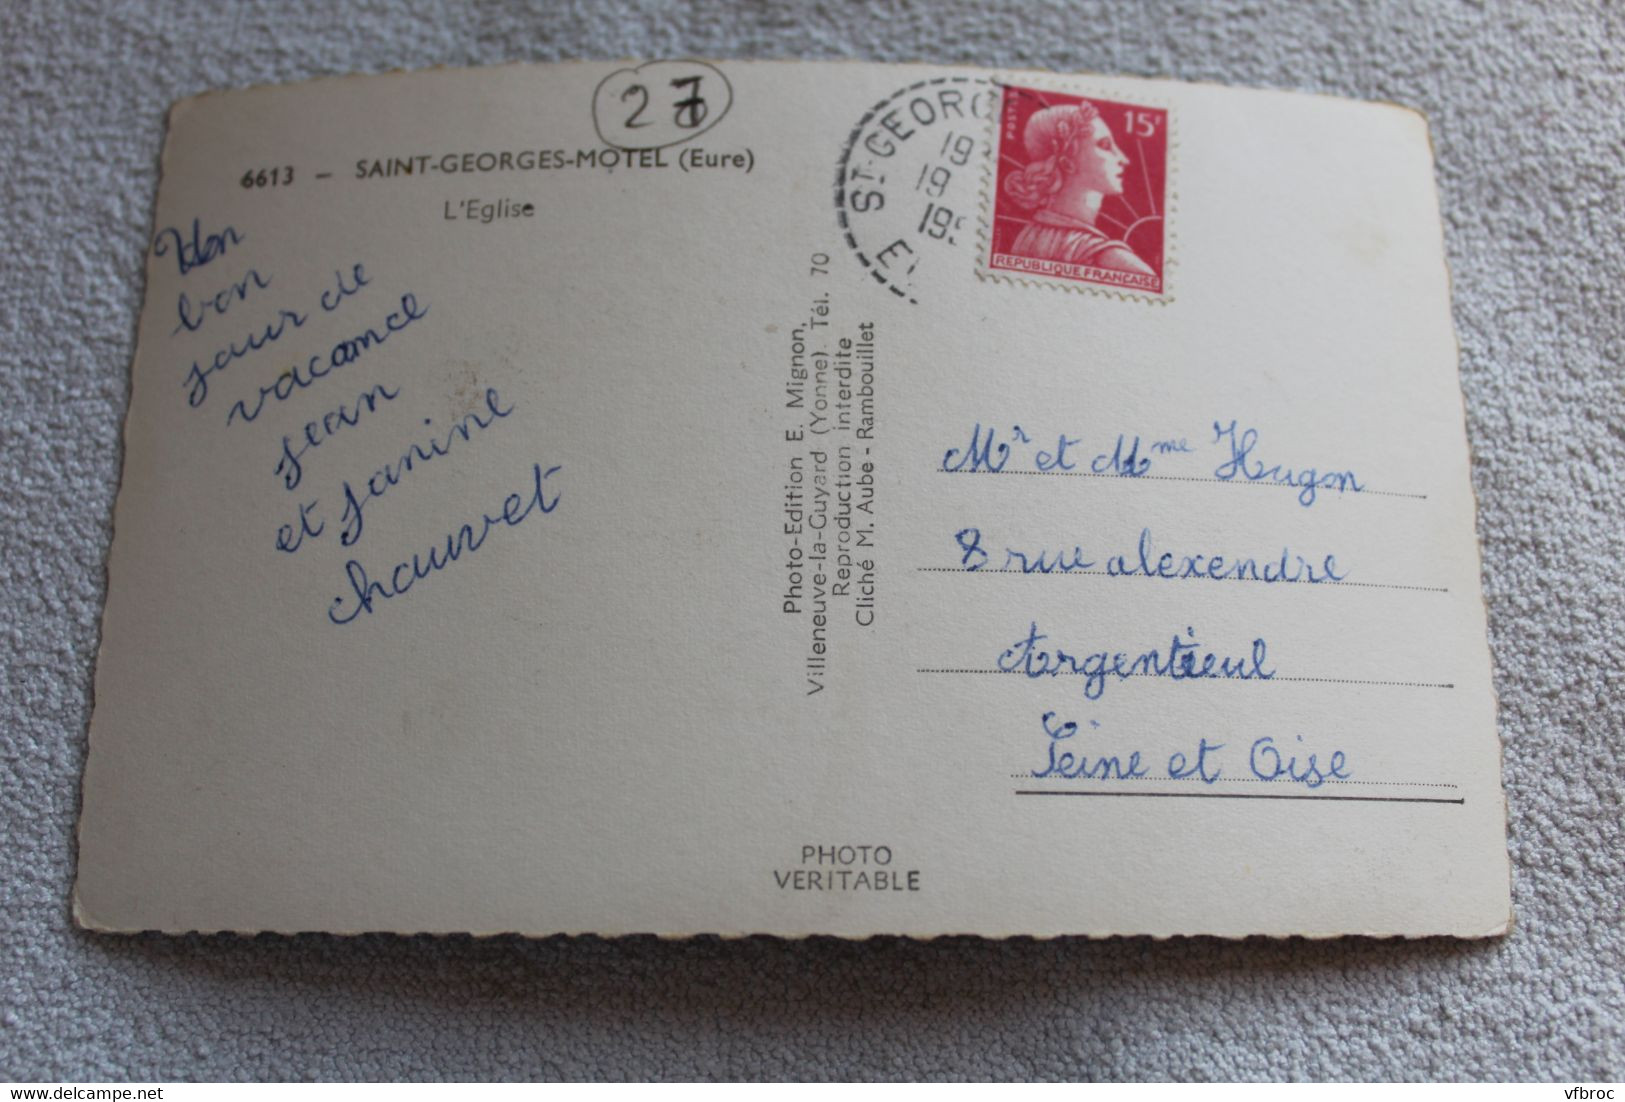 27
6613 - SAINT-GEORGES-MOTEL (Eure)
L'Eglise
bon
jour de
vacance
jean
et janine
chauvet
Photo-Edition E. Mignon,
Villeneuve-la-Guyard (Yonne). Tél. 70
Reproduction interdite
Cliché M. Aube - Rambouillet
ST-GEORG
19
19
195
E
POSTES
15F
REPUBLIQUE FRANÇAISE
Mr et Mme Hugon
8 rue alexendre
Argentieul
Seine et Oise
PHOTO
VERITABLE
vfbroc